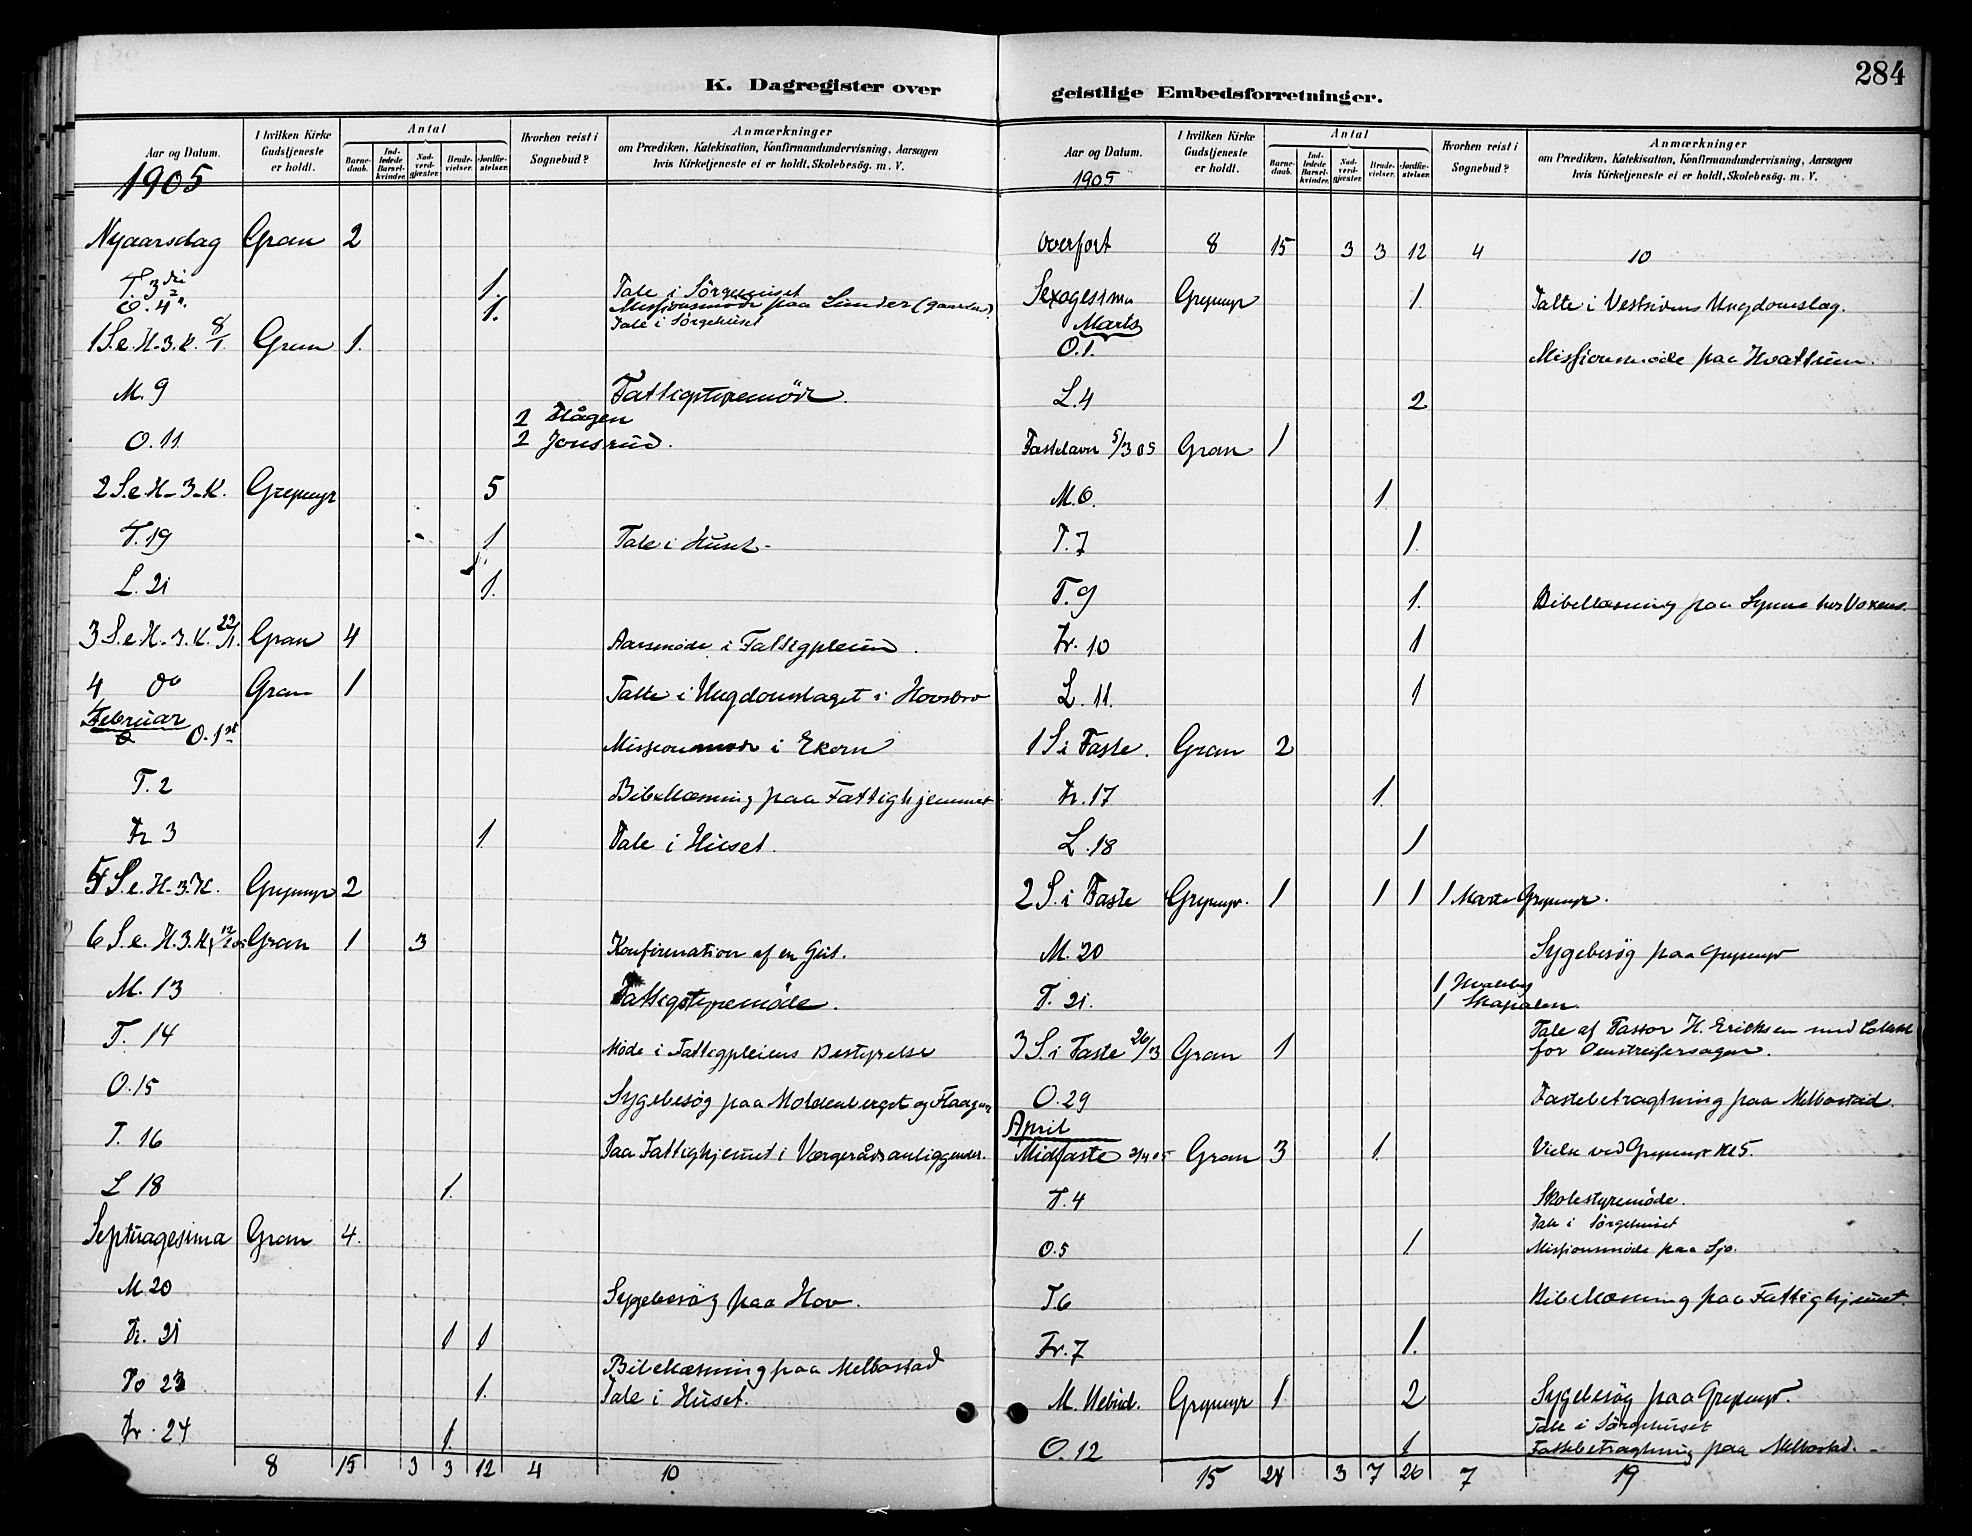 K. Dagregister over
Aar og Datum.
1905
I hvilken Kirke Gudstjeneste er holdt.
Antal
Barnedaab.
Indledede Barselkvinder.
Nadverdgjester.
Brudevielser.
Jordfæstelser.
Hvorhen reist i Sognebud?
Anmærkninger
om Prædiken, Katekisation, Konfirmandundervisning, Aarsagen
hvis Kirketjeneste ei er holdt, Skolebesøg. m. V.
Nyaarsdag Gran 2
T. 3die 1. Tale i Sørgehuset
O. 4 1. Missionsmøde paa Sunder (gaarden)
Tale i Sørgehuset
1 S. e. H. 3. K. 8/1. Gran 1.
M. 9 Fattigstyremøde.
2 Flågen
O. 11 2 Jonsrud.
2 S. e. H. 3. K. Grymyr 5
T. 19 1 Tale i Huset.
L. 21 1.
3 S. e. H. 3. K. 22/1. Gran 4 Aarsmøde i Fattigpleien.
4 do Gran 1 Talte i Ungdomslaget i Hovsbro
Februar
O. 1st Missionsmøde i Ekern
T. 2 Bibellæsning paa Fattighjemmet
Fr. 3 1. Tale i Huset.
5 S. e. H. 3. K. Grymyr 2
6 S. e. H. 3. K. 12/2 05 Gran 1 3 Konfirmation af en Gut.
M. 13 Fattigstyremøde.
T. 14 Møde i Fattigpleiens Bestyrelse
O. 15 Sygebesøg paa Moldenberget og Flaagen
T. 16 Paa Fattighjemmet i Værgerådsanliggender.
L 18 1.
Septuagesima Gran 4.
M. 20 Sygebesøg paa Hov.
Tr. 21 1 1
Bibellæsning paa Melbostad
To 23 1. Tale i Huset.
Fr. 24 1.
8 15 3 3 12 4 10
geistlige Embedsforretninger.
284
Aar og Datum.
1905
I hvilken Kirke Gudstjeneste er holdt.
Antal
Barnedaab.
Indledede Barselkvinder.
Nadverdgjester.
Brudevielser.
Jordfæstelser.
Hvorhen reist i Sognebud?
Anmærkninger
om Prædiken, Katekisation, Konfirmandundervisning, Aarsagen
hvis Kirketjeneste ei er holdt, Skolebesøg. m. V.
Overført 8 15 3 3 12 4 10
Sexagesima Grymyr 1. Talte i Vestsidens Ungdomslag.
Marts
O. 1. Missionsmøde paa Hvattum.
L. 4 2
Fastelavn 5/3 05 Gran 1
M. 6. 1
T. 7 1.
T. 9 1. Bibellæsning paa Lynne hos
Fr. 10 1
L. 11. 1
1 S. i Faste. Gran 2
Fr. 17 1.
L. 18 1
2 S. i Faste Grymyr. 1 1 1 1 Marte Grymyr.
M. 20 Sygebesøg paa Grymyr
1 Hvaleby
T. 21. 1
Tale af Pastor H. Eriksen med
3 S. i Faste 26/3 Gran 1 for Omstreifersagen.
O. 29 Fastebetragtning paa Melbostad.
April
Midfaste 2/4 05 Gran 3 1. Vielse ved Grymyr Kl 5.
T. 4 Skolestyremøde.
Tale i Sørgehuset
O. 5 1 Missionsmøde paa Sjo.
T 6 Bibellæsning paa Fattighjemmet.
Fr. 7 1.
M. Bebud. Grymyr 1. 2 Sygebesøg paa Grymyr.
Tale i Sørgehuset
O. 12 1 Fastebetragtning paa Melbostad.
15 24 3 7 26 7 19